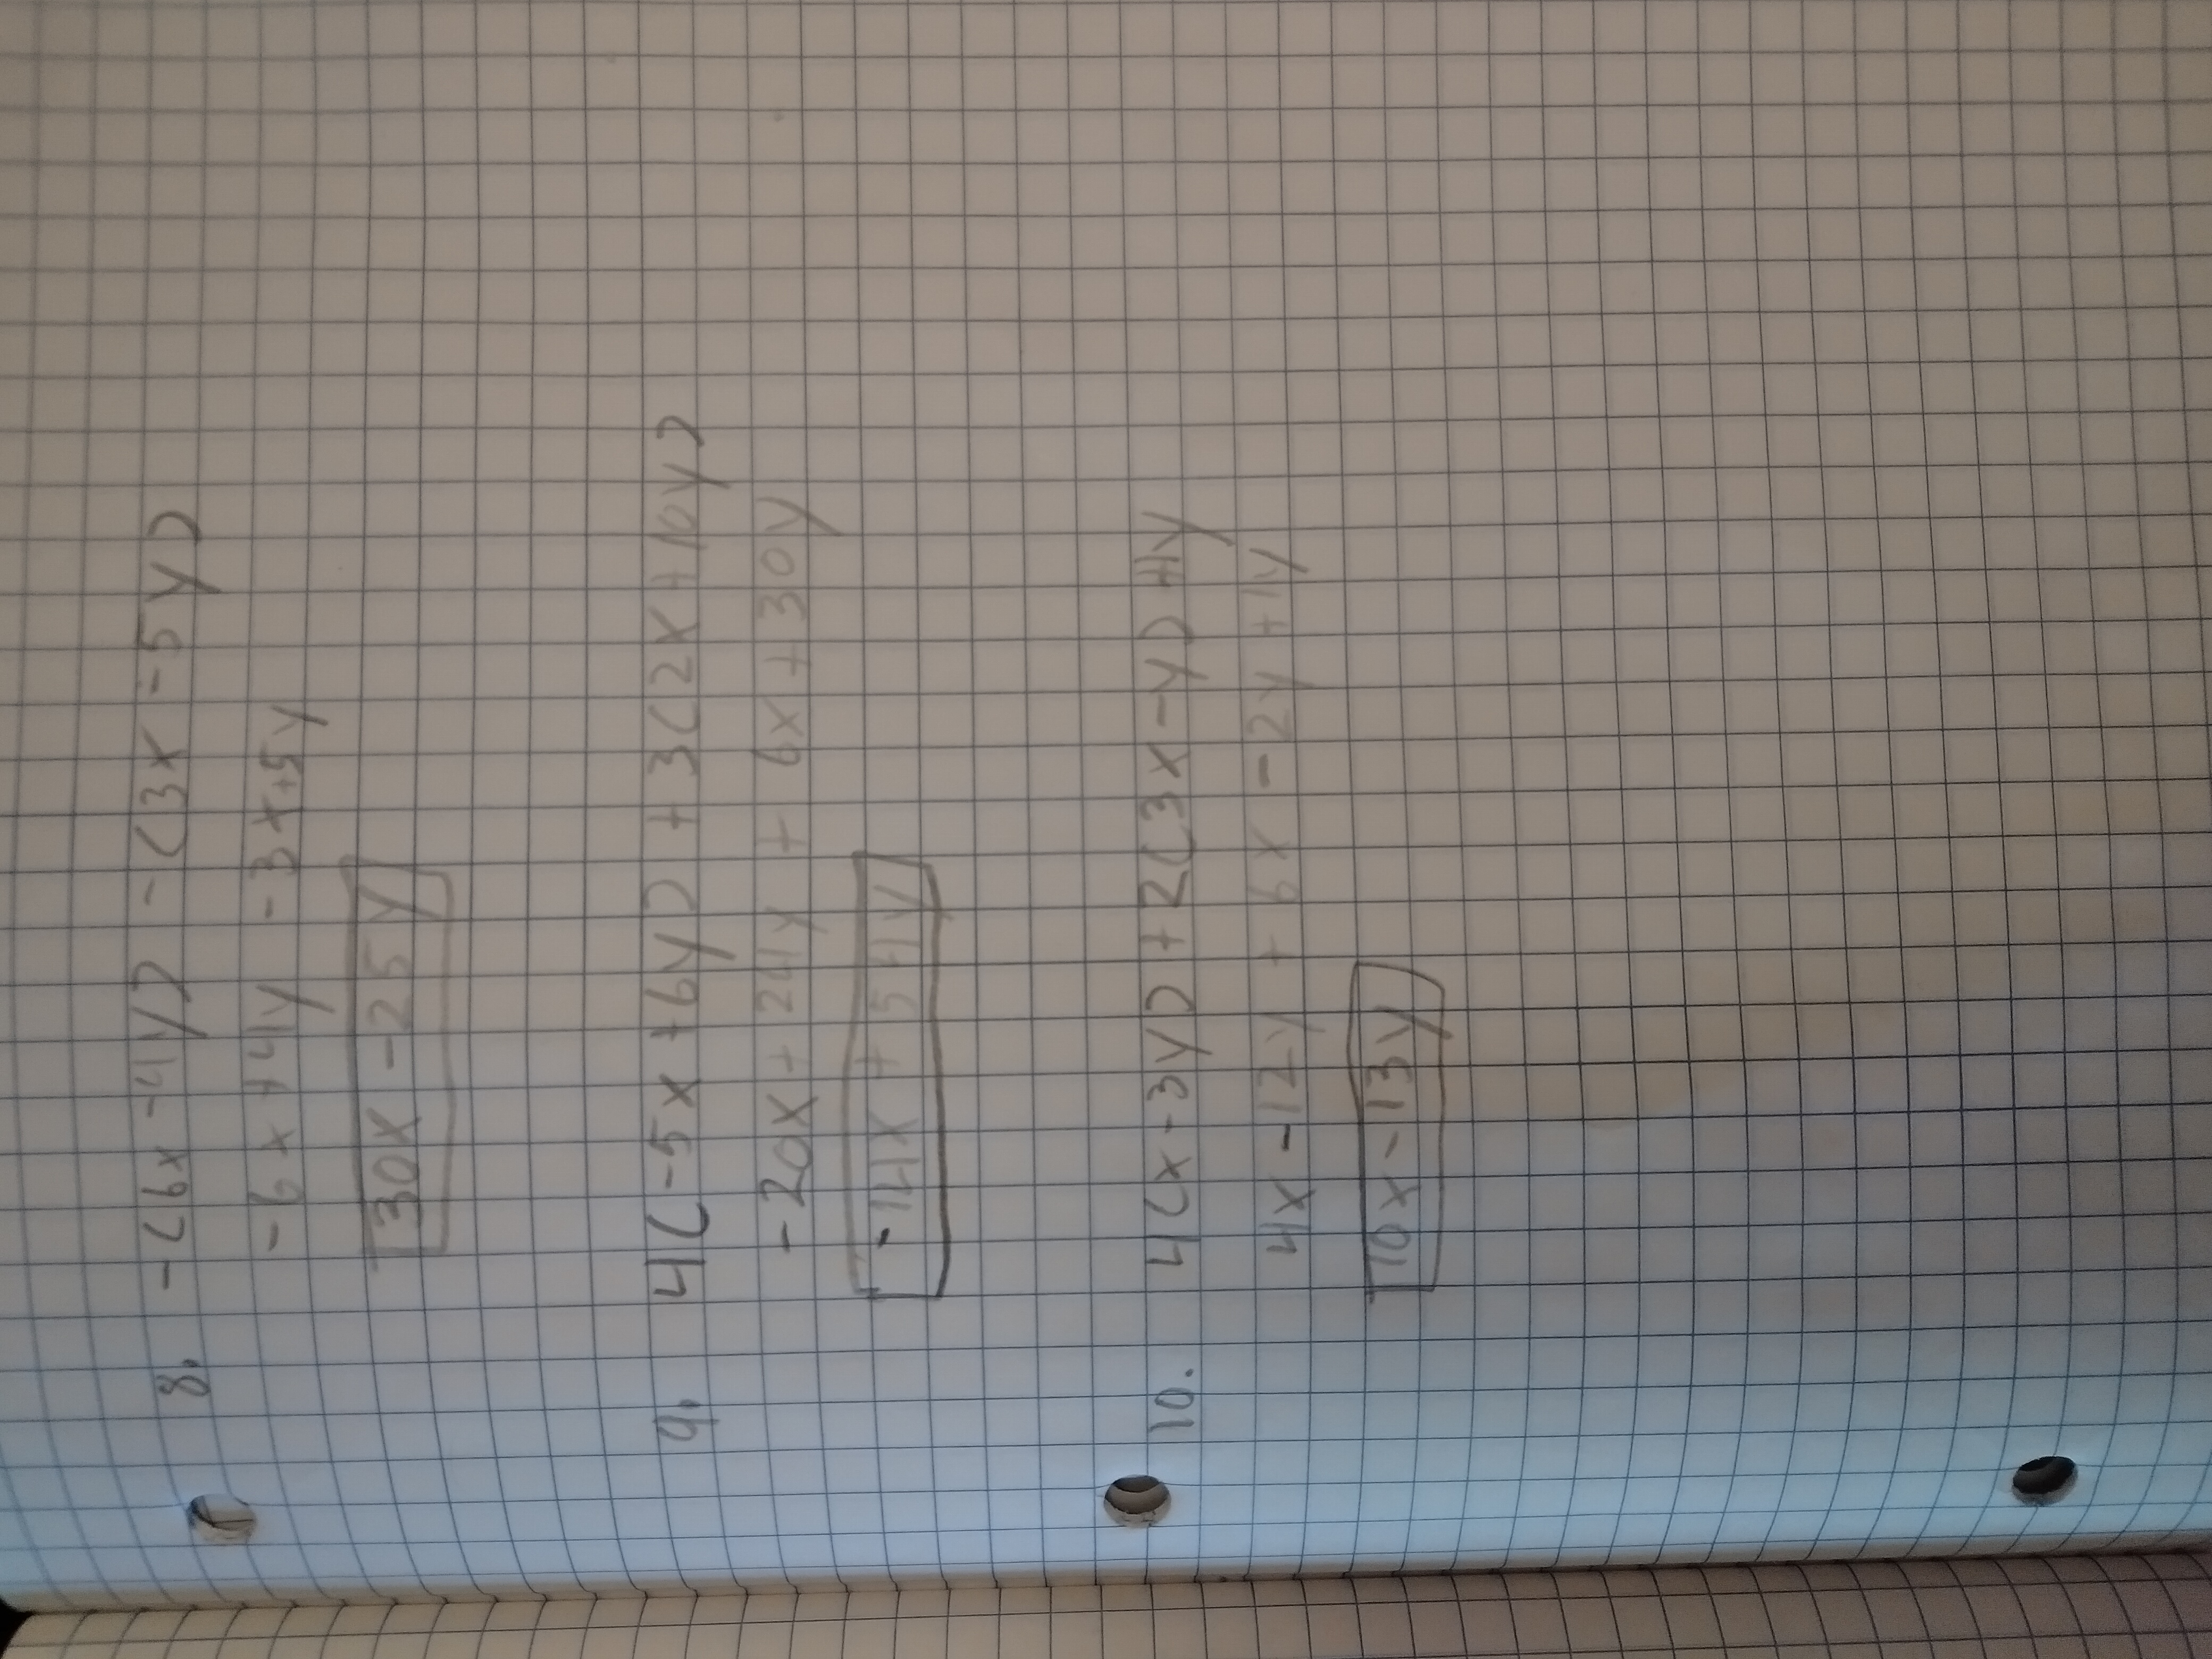 8. -(6x -4y) -(3x -5y)
-6x +4y -3x+5y
30x -25y
9. 4(-5x +6y) +3(2x+10y)
-20x + 24y + 6x + 30y
-14x + 54y
10. 4(x-3y)+2(3x-y)+1y
4x -12y + 6x -2y +1y
10x -13y